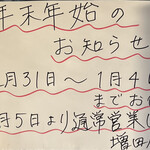 年末年始の
お知らせ
月31日～1月4
までお
月5日より通常営業
増田